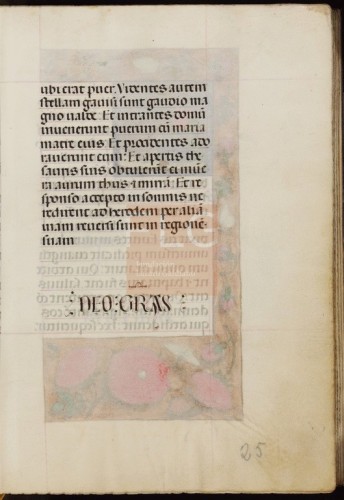 ubi erat puer. Videntes autem
stellam gauisi sunt gaudio ma
gno ualde. Et intrantes domū
inuenerunt puerum cū maria
matre eius. Et procidentes ado
rauerunt eum. Et apertis the
sauris suis obtulerunt ei mune
ra aurum thus ⁊ mirrā. Et re
sponso accepto in somnis ne
redirent ad herodem per aliā
uiam reuersi sunt in regionē
suam
DEO: GRĀS
25